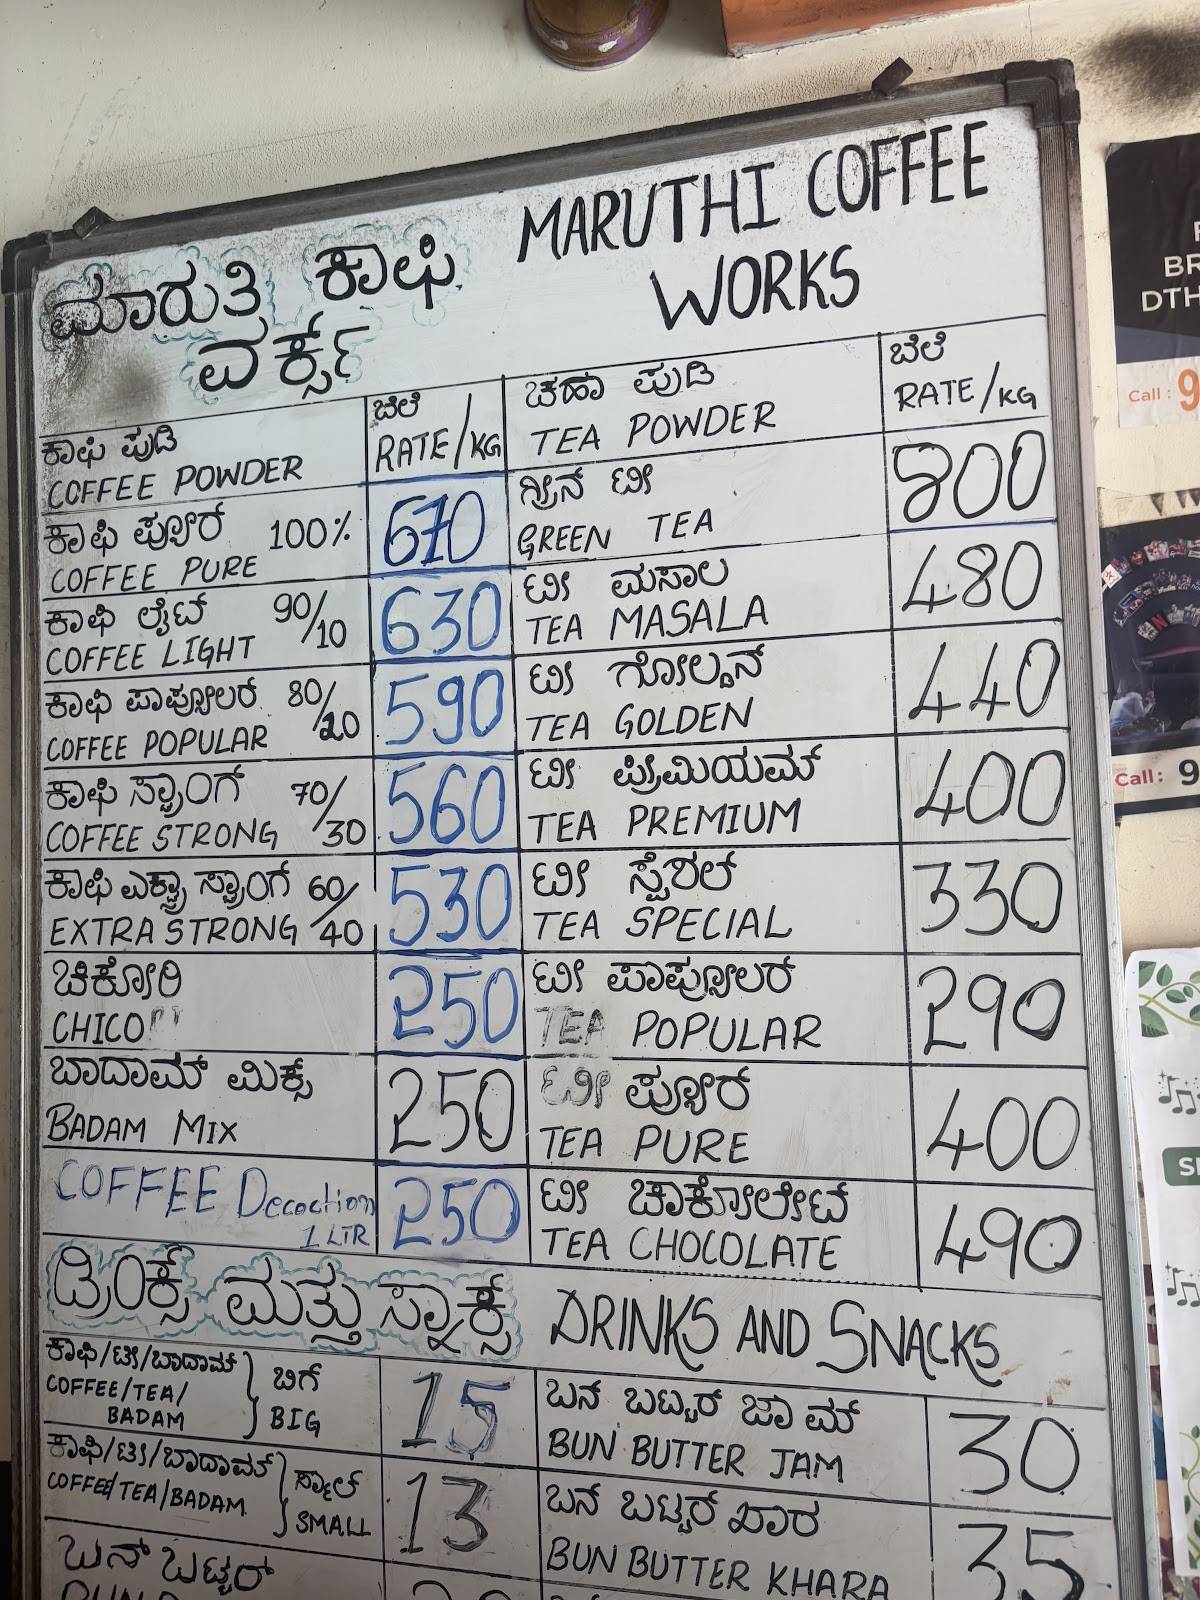 ಮಾರುತಿ ಕಾಫಿ
ವರ್ಕ್ಸ್
MARUTHI COFFEE
WORKS
ಕಾಫಿ ಪುಡಿ
COFFEE POWDER
ಬೆಲೆ
RATE/KG
ಚಹಾ ಪುಡಿ
TEA POWDER
ಬೆಲೆ
RATE/KG
ಕಾಫಿ ಪ್ಯೂರ್ 100%
COFFEE PURE
670
ಗ್ರೀನ್ ಟೀ
GREEN TEA
800
ಕಾಫಿ ಲೈಟ್ 90/10
COFFEE LIGHT
630
ಟೀ ಮಸಾಲ
TEA MASALA
480
ಕಾಫಿ ಪಾಪ್ಯೂಲರ್ 80/20
COFFEE POPULAR
590
ಟೀ ಗೋಲ್ಡನ್
TEA GOLDEN
440
ಕಾಫಿ ಸ್ಟ್ರಾಂಗ್ 70/30
COFFEE STRONG
560
ಟೀ ಪ್ರೀಮಿಯಮ್
TEA PREMIUM
400
ಕಾಫಿ ಎಕ್ಸ್ಟ್ರಾ ಸ್ಟ್ರಾಂಗ್ 60/40
EXTRA STRONG
530
ಟೀ ಸ್ಪೆಶಲ್
TEA SPECIAL
330
ಚಿಕೋರಿ
CHICO
250
ಟೀ ಪಾಪ್ಯೂಲರ್
TEA POPULAR
290
ಬಾದಾಮ್ ಮಿಕ್ಸ್
BADAM MIX
250
ಟೀ ಪ್ಯೂರ್
TEA PURE
400
COFFEE Decoction
1 LTR
250
ಟೀ ಚಾಕೋಲೇಟ್
TEA CHOCOLATE
490
ಡ್ರಿಂಕ್ಸ್ ಮತ್ತು ಸ್ನಾಕ್ಸ್ DRINKS AND SNACKS
ಕಾಫಿ/ಟೀ/ಬಾದಾಮ್ ಬಿಗ್
COFFEE/TEA/
BADAM BIG
15
ಬನ್ ಬಟ್ಟರ್ ಜಾಮ್
BUN BUTTER JAM
30
ಕಾಫಿ/ಟೀ/ಬಾದಾಮ್ ಸ್ಮಾಲ್
COFFEE/TEA/BADAM SMALL
13
ಬನ್ ಬಟ್ಟರ್ ಖಾರ
BUN BUTTER KHARA
35
ಬನ್ ಬಟ್ಟರ್
BR
DTH
Call : 9
Call: 9